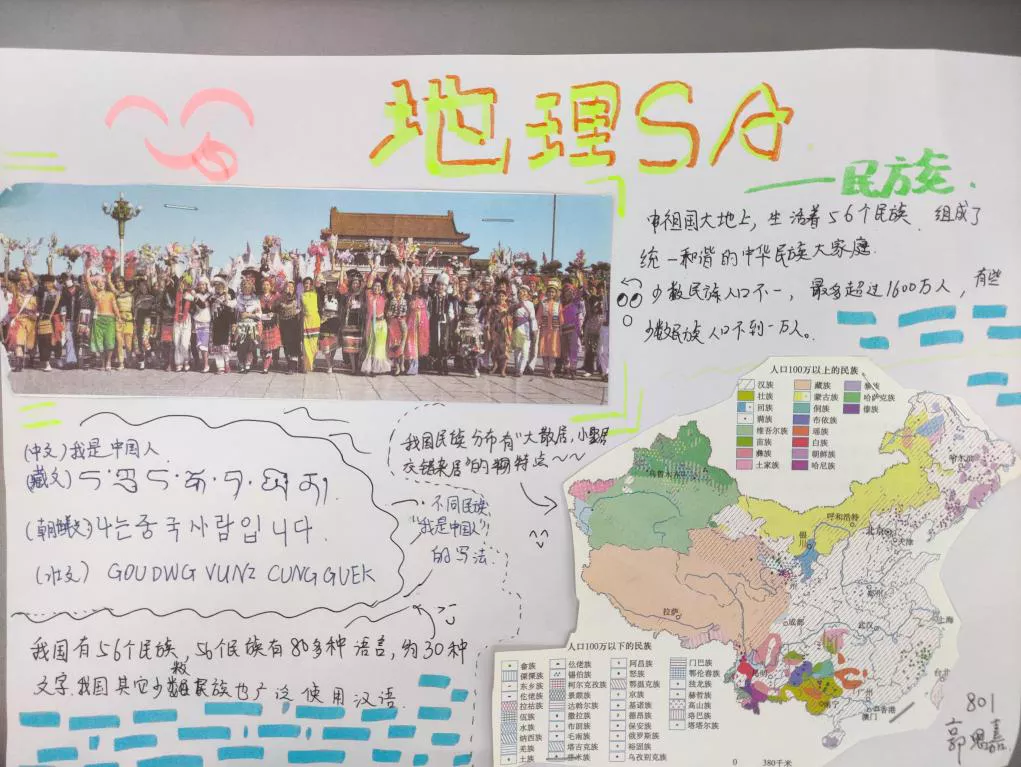 地理SA
——民族.
在祖国大地上，生活着56个民族，组成了
统一和谐的中华民族大家庭.
少数民族人口不一，最多超过1600万人，有些
少数民族人口不到一万人。
(中文)我是中国人
(藏文)
(朝鲜文)나는중국사람입니다
(壮文) GOU DWG VUNZ CUNGGUEK
我国民族分布有"大散居，小聚居
交错杂居"的特点~~
不同民族
"我是中国人"
的写法.
我国有56个民族，56个民族有80多种语言，约30种
文字.我国其它少数民族也广泛使用汉语.
人口100万以上的民族
汉族 藏族 黎族
壮族 蒙古族 哈萨克族
回族 侗族 傣族
满族 布依族
维吾尔族 瑶族
苗族 白族
彝族 朝鲜族
土家族 哈尼族
乌鲁木齐
哈尔滨
呼和浩特
北京
天津
银川
兰州
郑州
拉萨
成都
武汉
上海
昆明
台北
广州
南宁
香港
澳门
人口100万以下的民族
畲族 仫佬族 阿昌族 门巴族
傈僳族 锡伯族 怒族 鄂伦春族
东乡族 柯尔克孜族 鄂温克族 独龙族
仡佬族 景颇族 京族 赫哲族
拉祜族 达斡尔族 基诺族 高山族
佤族 撒拉族 德昂族 珞巴族
水族 布朗族 保安族 塔塔尔族
纳西族 毛南族 俄罗斯族
羌族 塔吉克族 裕固族
土族 普米族 乌孜别克族
0 380千米
801